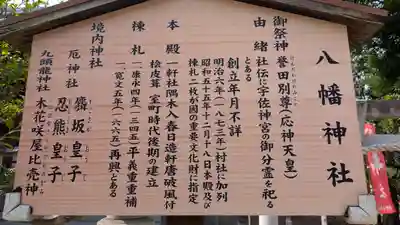 八幡神社
御祭神 誉田別尊(応神天皇)
由緒 社伝に宇佐神宮の御分霊を祀る
とある
創立年月不詳
明治六年(一八七三年)村社に加列
昭和五十五年十二月十八日本殿及び
棟札二枚が国の重要文化財に指定
本殿 一軒社隅木入春日造軒唐破風付
桧皮葺 室町時代後期の建立
棟札 一、康永四年(一三四五)平義重重補
一、寛文五年(一六六五)再興とある
境内神社
厄神社 麛坂皇子
忍熊皇子
九頭龍神社 木花咲屋比売神